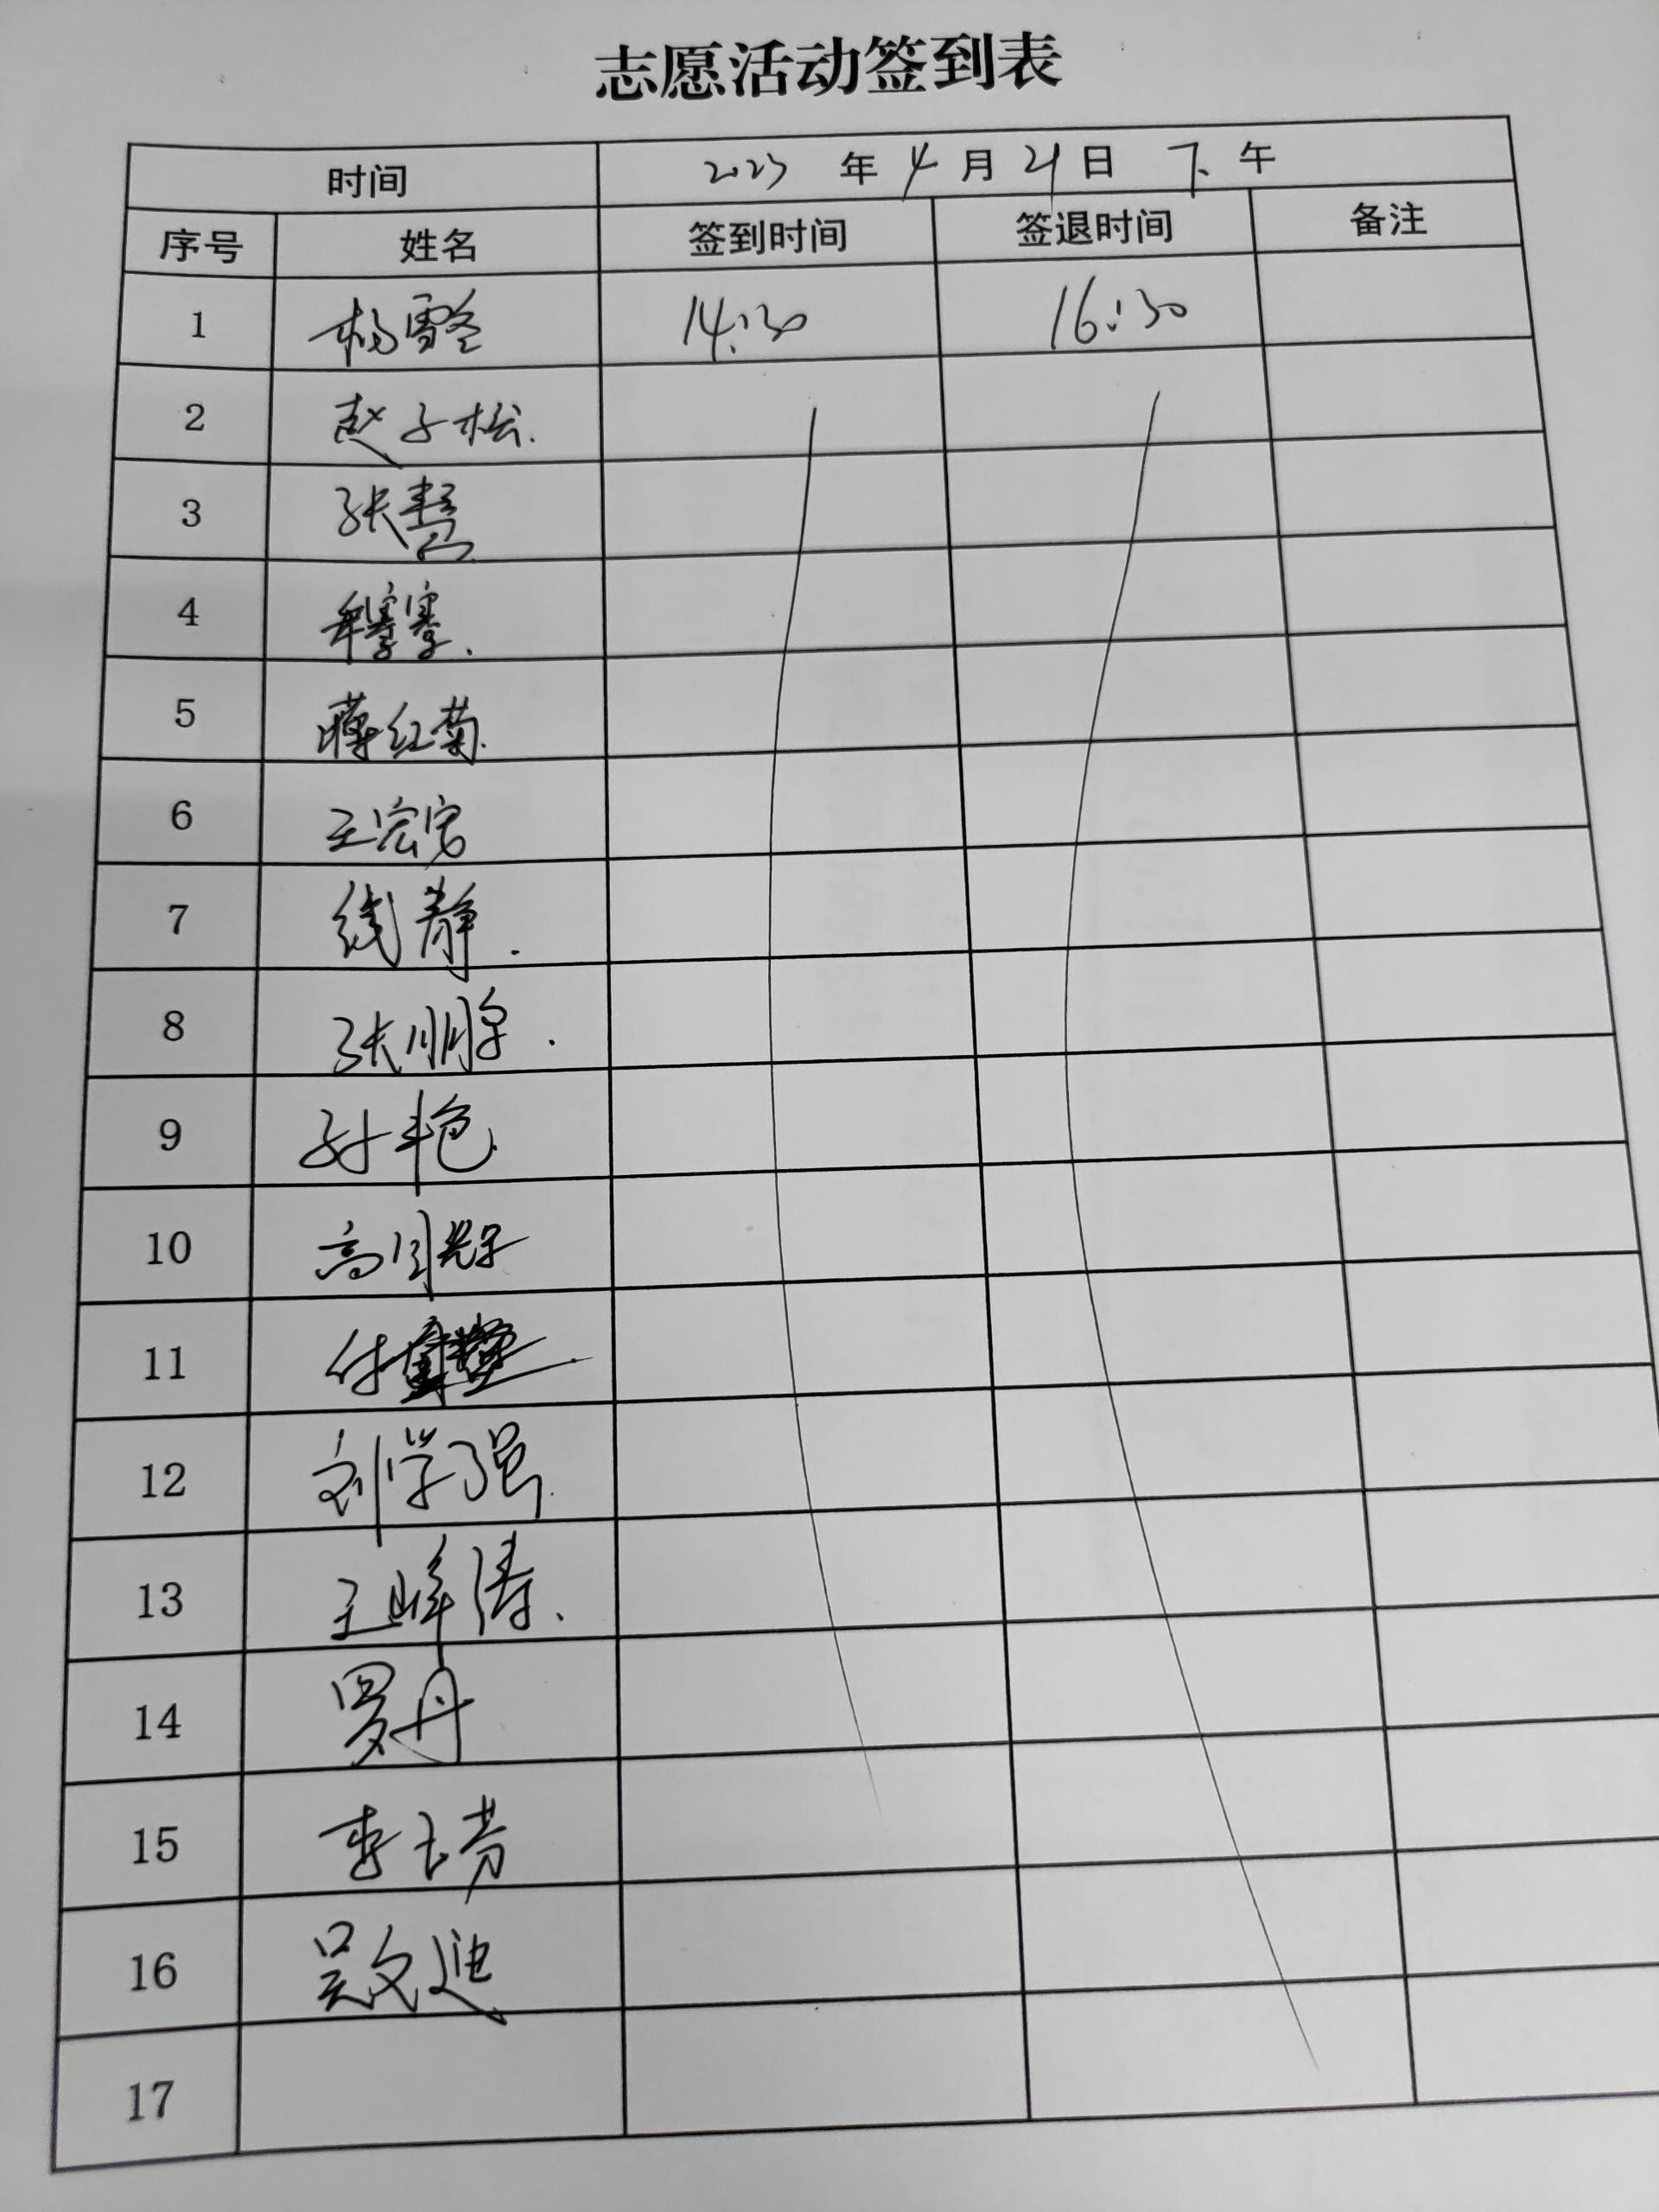 志愿活动签到表
时间 2023 年 4 月 21 日 下 午
序号 姓名 签到时间 签退时间 备注
1 杨雪 14:30 16:30
2 赵子松
3 张慧
4
5 蒋红菊
6 王宏宏
7 线静
8 张鹏宇
9 孙艳
10 高
11 付
12 刘学强
13 王峰涛
14 罗丹
15 李玉芳
16 吴文迪
17